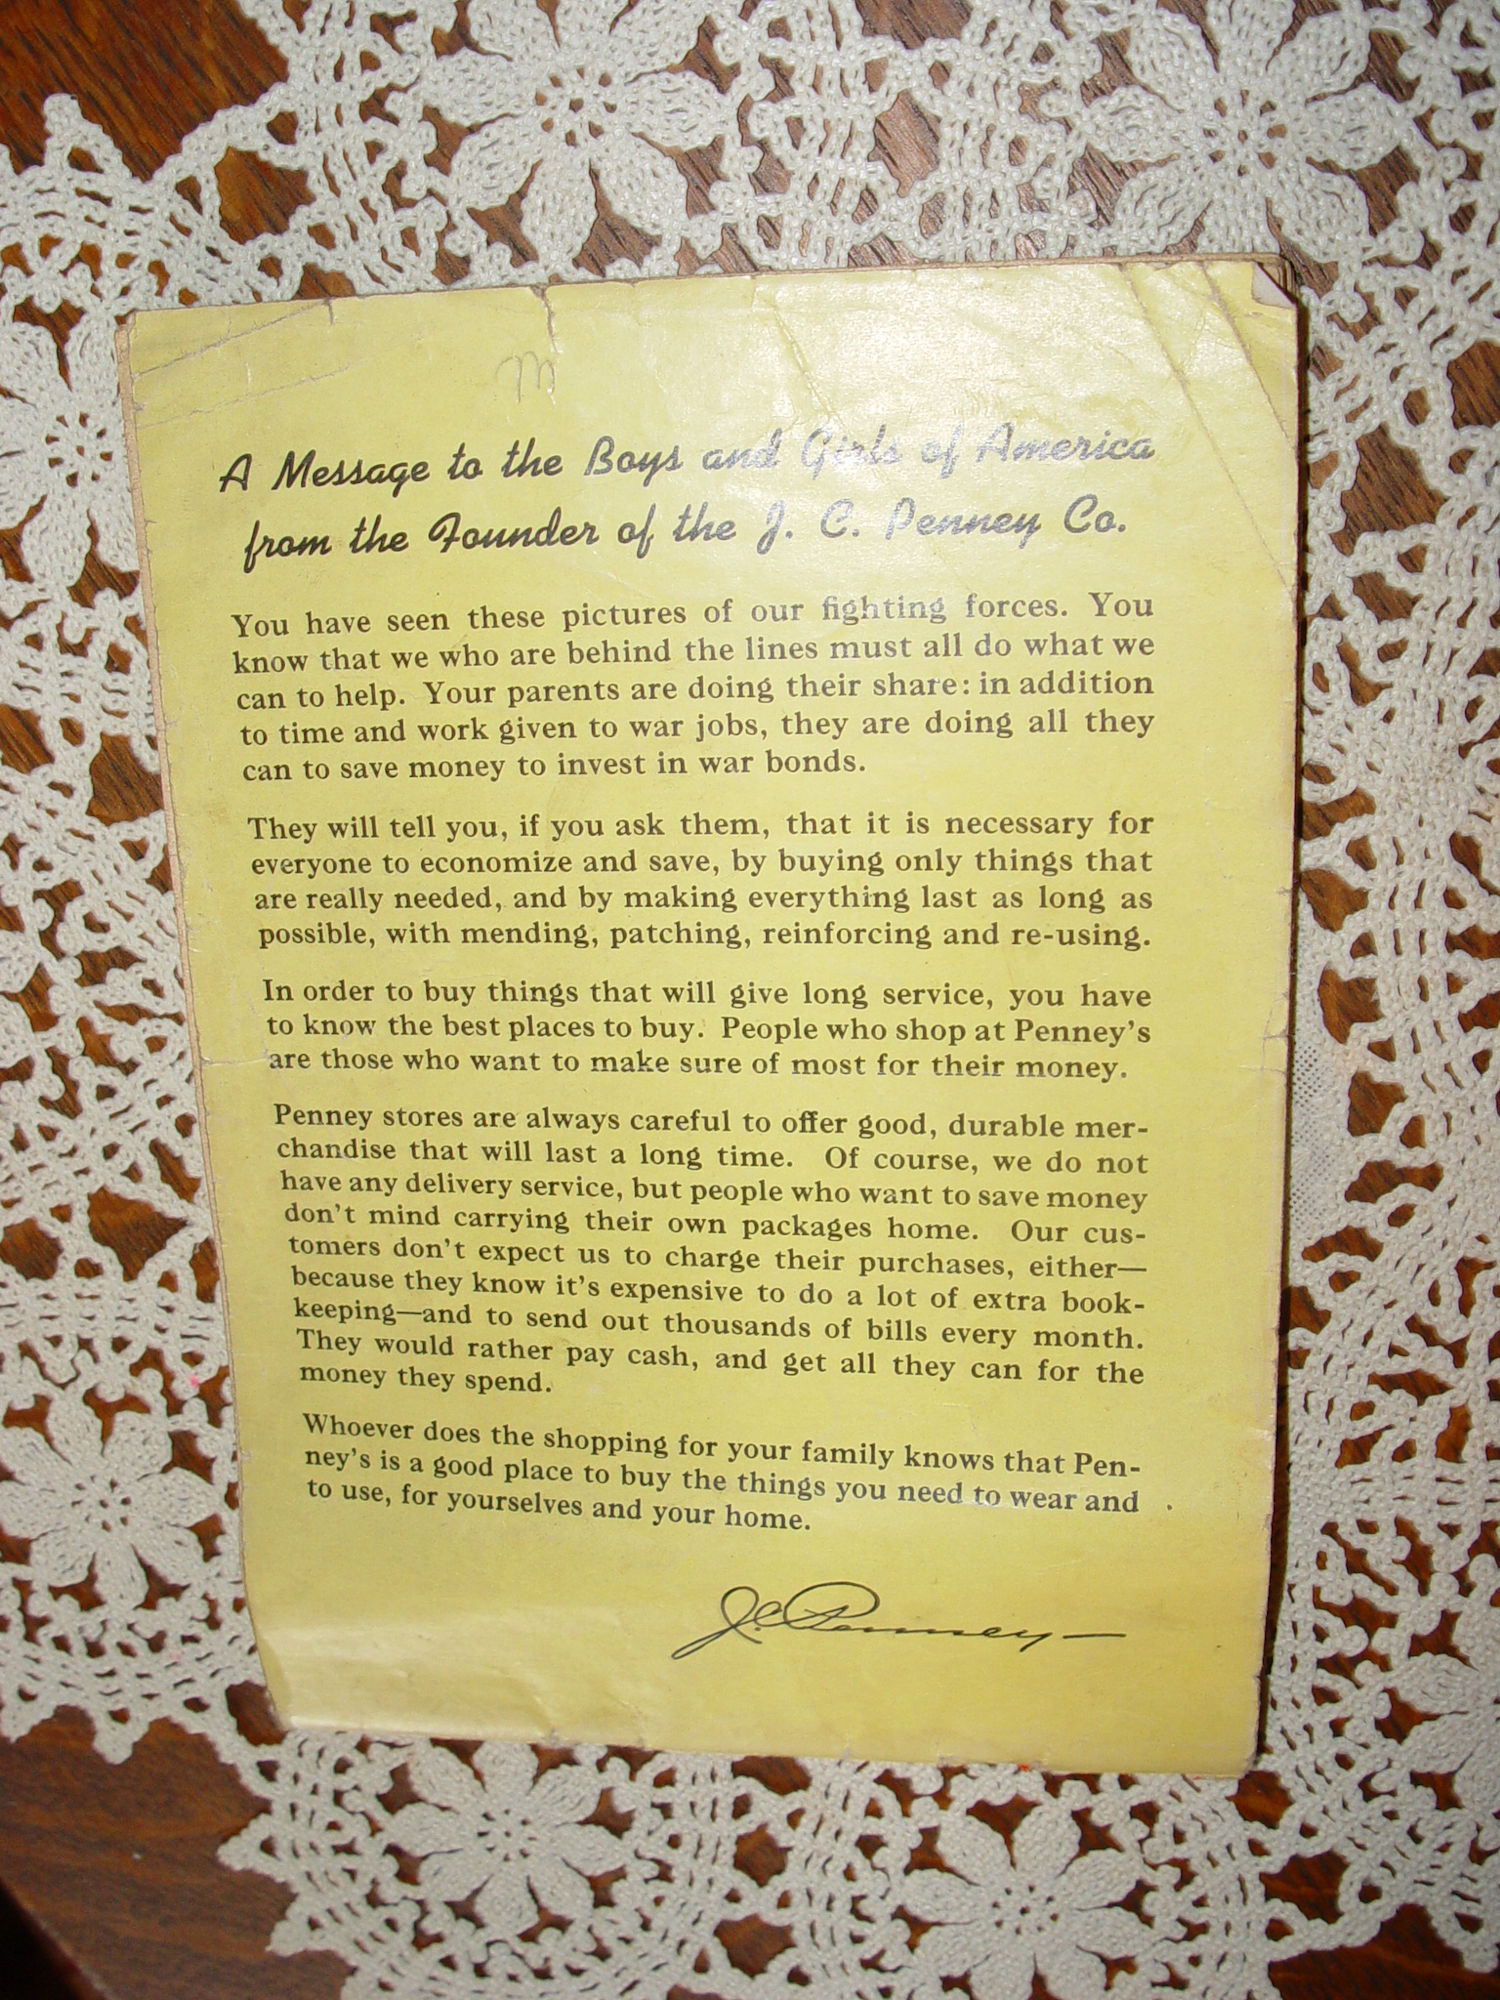 A Message to the Boys and Girls of America
from the Founder of the J. C. Penney Co.
You have seen these pictures of our fighting forces. You
know that we who are behind the lines must all do what we
can to help. Your parents are doing their share: in addition
to time and work given to war jobs, they are doing all they
can to save money to invest in war bonds.
They will tell you, if you ask them, that it is necessary for
everyone to economize and save, by buying only things that
are really needed, and by making everything last as long as
possible, with mending, patching, reinforcing and re-using.
In order to buy things that will give long service, you have
to know the best places to buy. People who shop at Penney's
are those who want to make sure of most for their money.
Penney stores are always careful to offer good, durable mer-
chandise that will last a long time. Of course, we do not
have any delivery service, but people who want to save money
don't mind carrying their own packages home. Our cus-
tomers don't expect us to charge their purchases, either—
because they know it's expensive to do a lot of extra book-
keeping—and to send out thousands of bills every month.
They would rather pay cash, and get all they can for the
money they spend.
Whoever does the shopping for your family knows that Pen-
ney's is a good place to buy the things you need to wear and
to use, for yourselves and your home.
J.C. Penney